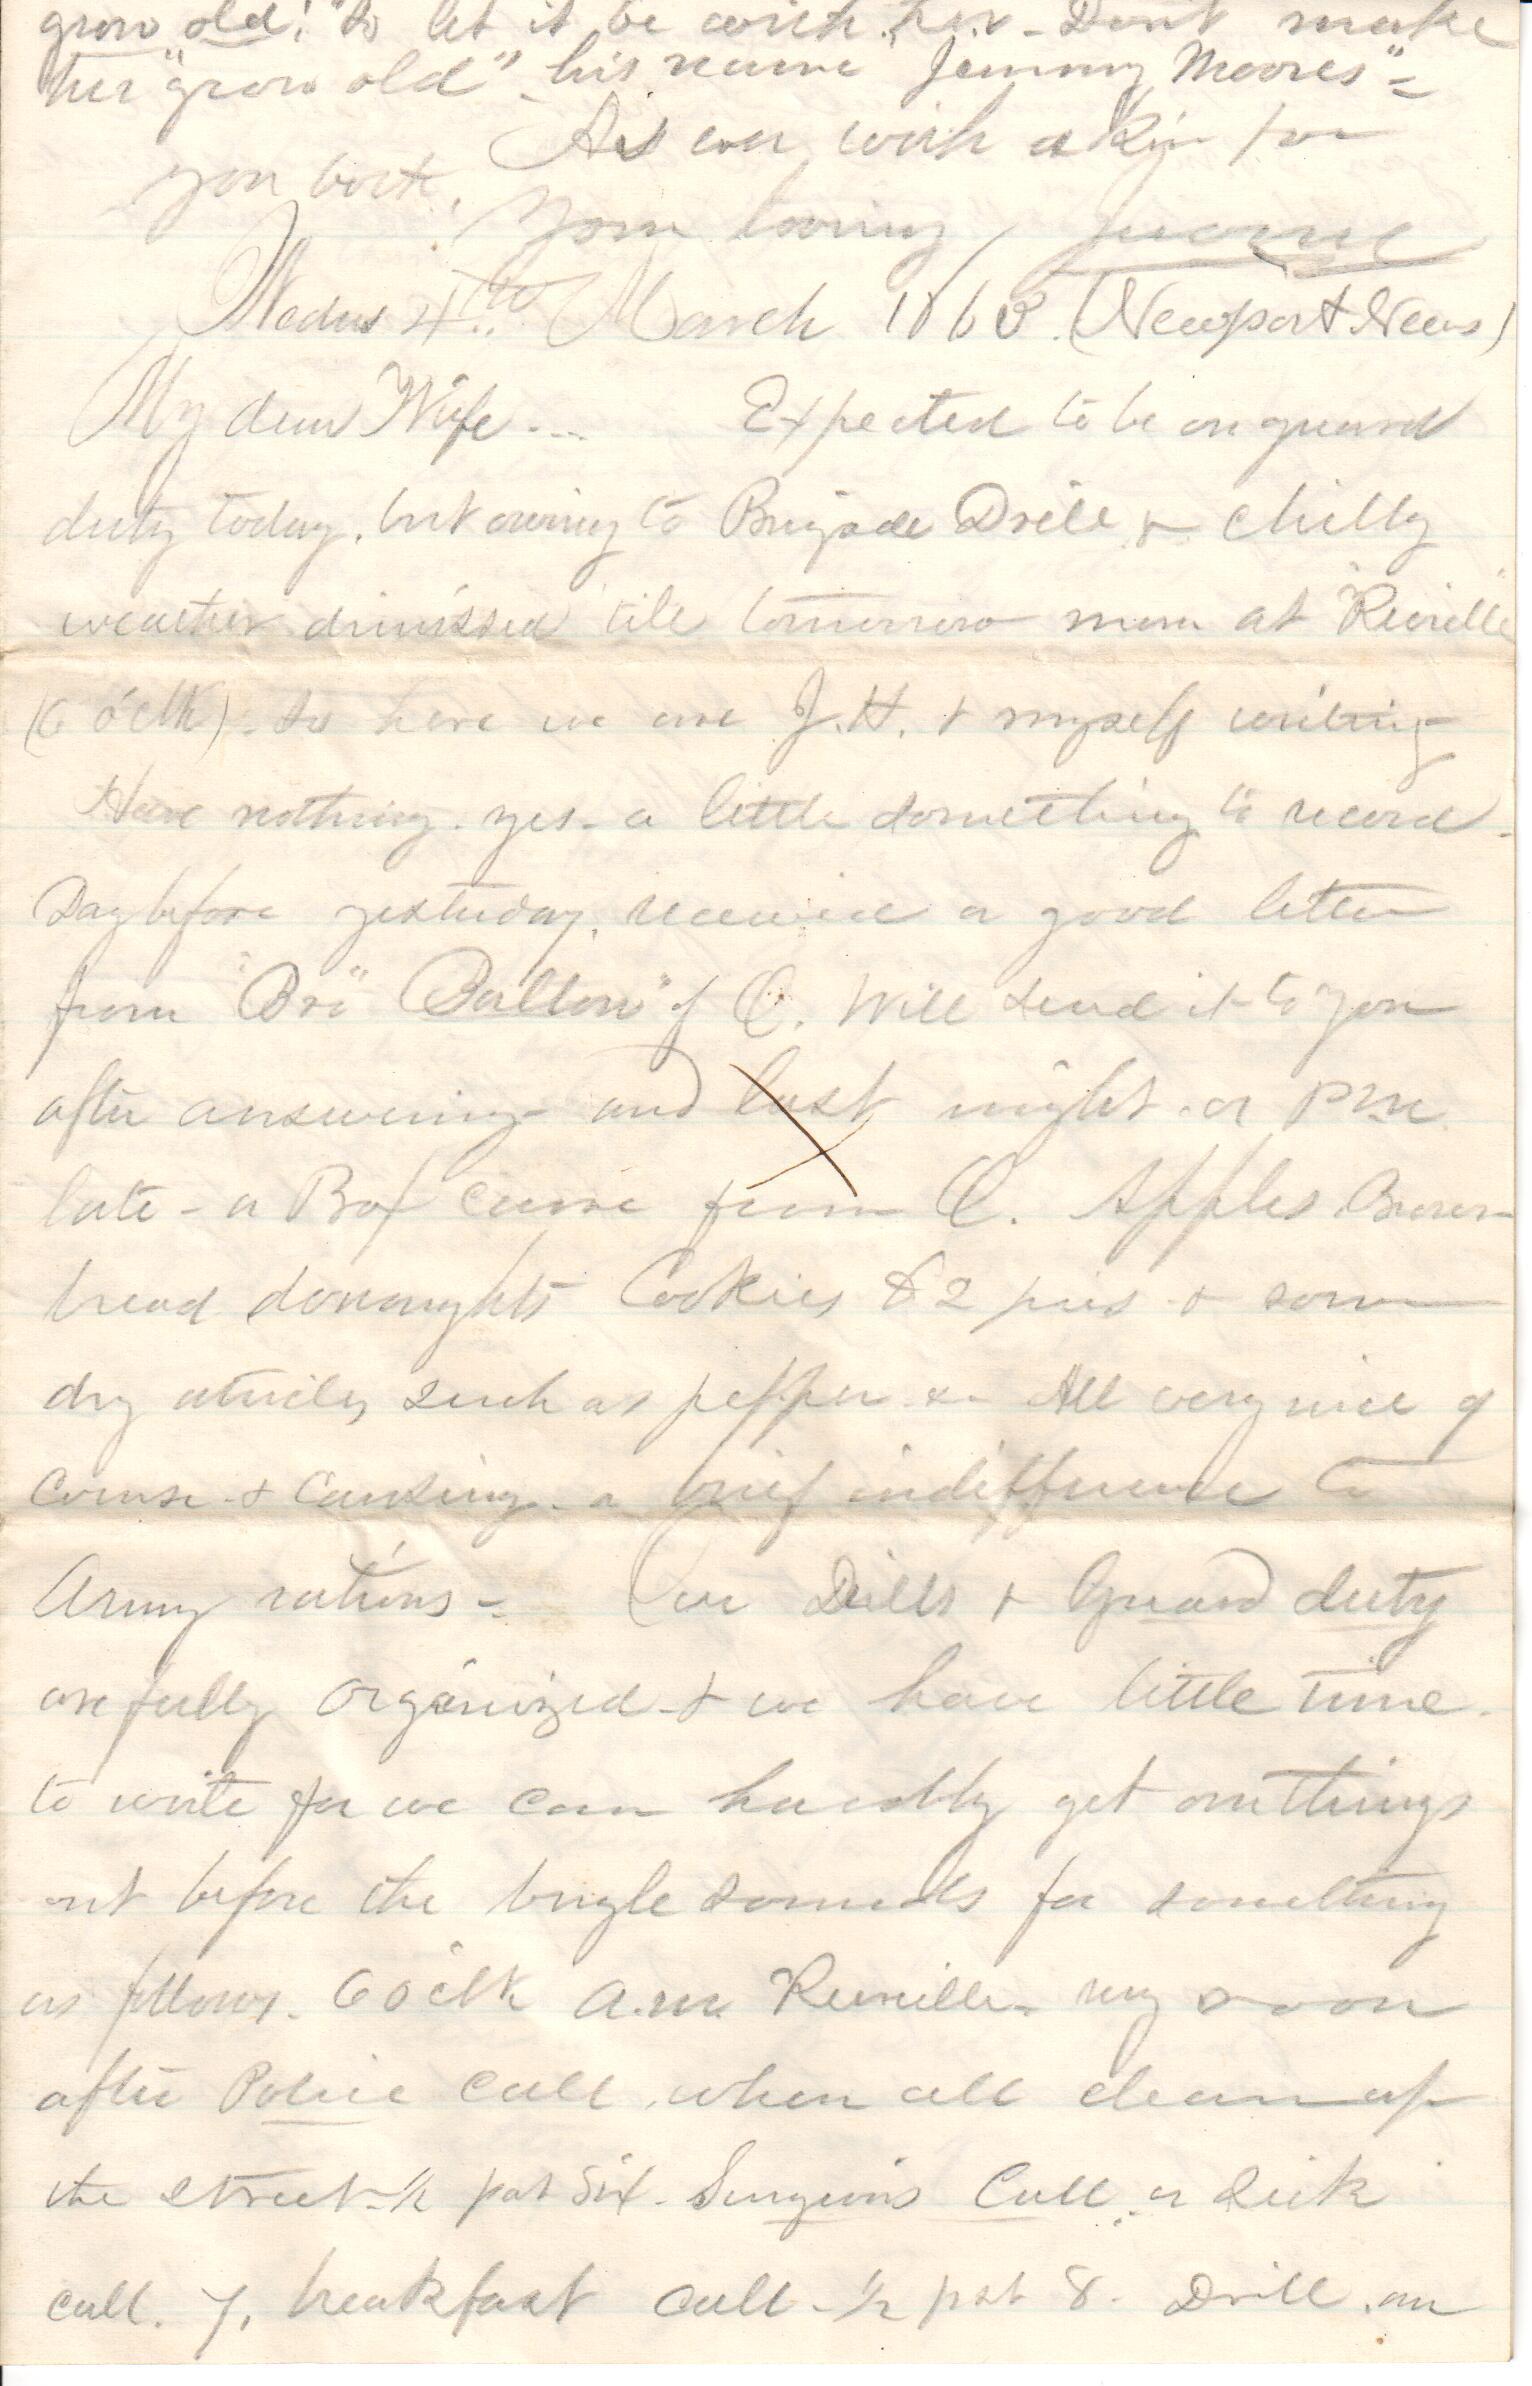 grow old! to let it be with her - Don't make
her "grow old" - his name "Jemmy Moores" -
As ever with a Kiss for
you both,
Your loving
Wedns 4th March 1863. (Newport News)
My dear Wife - - - Expected to be on guard
duty today, but owing to Brigade Drill & chilly
weather dismissed till tomorrow morn at "Reveille"
(6 o'clk). So here we are J. H. & myself writing
Have nothing - yes - a little something to record -
Day before yesterday, received a good letter
from "Bro" Ballou" of Q. Will send it to you
after answering - and last night - or P.M.
late - a Box came from Q. Apples Brown
bread doughnuts Cookies & 2 pies & some
dry articles, such as pepper &c All very nice of
course & causing - a brief indifference to
Army rations - Our Drills & Guard duty
are fully organized & we have little time -
to write for we can hardly get our things
out before the bugle sounds for something
as follows. 6 o'clk a.m. Reveille - very soon
after Police call, when all clean up
the street - 1/2 past six - Surgeons Call or Sick
call. 7, breakfast call - 1/2 past 8 - Drill, an